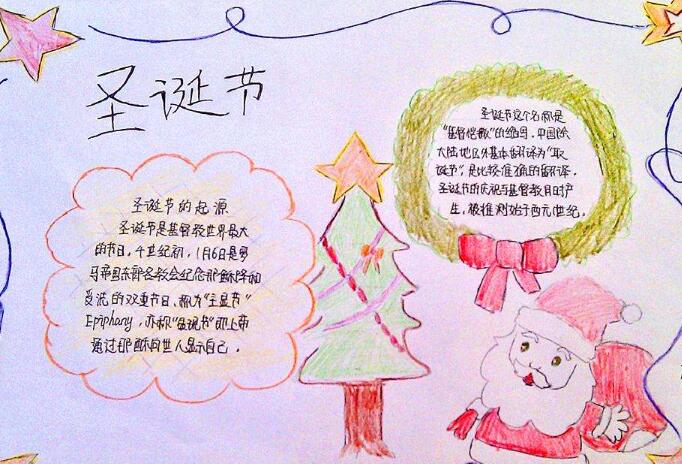 圣诞节
圣诞节的起源
圣诞节是基督教世界最大
的节日，4世纪初，1月6日是罗
马帝国东部各教会纪念耶稣降和
受洗的双重节日，称为"主显节"
Epiphany，亦称"显现节"即上帝
通过耶稣向世人显示自己。
圣诞节这个名称是
"基督弥撒"的缩写，中国除
大陆地区外基本翻译为"耶
诞节"，是比较准确的翻译。
圣诞节的庆祝与基督教同时产
生，被推测始于西元1世纪。